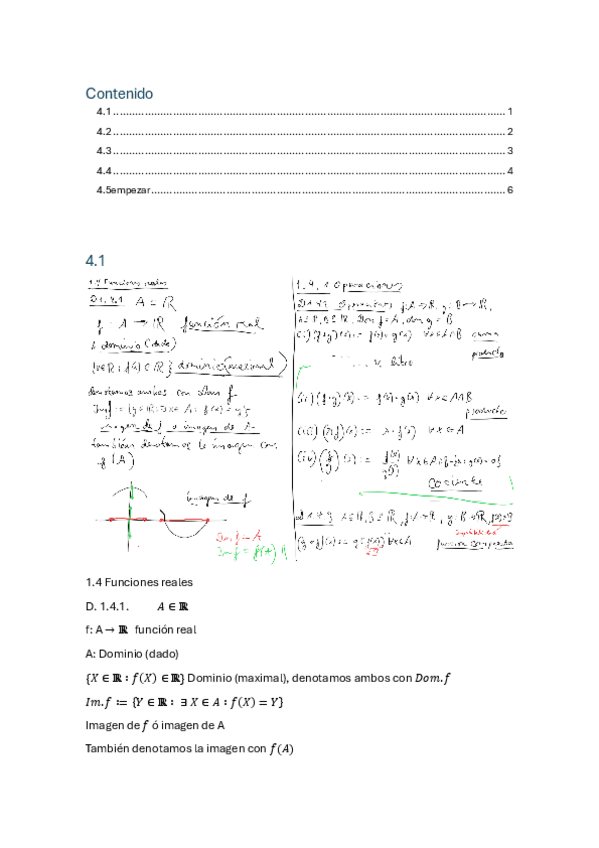 Contenido
4.1 ........ 1
4.2 ........ 2
4.3 ........ 3
4.4 ........ 4
4.5empezar ........ 6
4.1
1.4 Funciones reales
D1.4.1 A ⊆ ℝ
f: A → ℝ función real
dominio (dado)
{x∈ℝ: f(x)∈ℝ} dominio (maximal)
denotamos ambos con Dom f
Im f := {y∈ℝ: ∃x∈A: f(x)=y}
imagen de f o imagen de A
también denotamos la imagen con
f(A)
Imagen de f
Dom f = A
Im f = f(A)
1.4.1 Operaciones
Operaciones f: A→ℝ, g: B→ℝ,
(i) (f+g)(x) := f(x)+g(x) ∀x∈A∩B suma
producto
libro
(ii) (f·g)(x) := f(x)·g(x) ∀x∈A∩B
producto
(iii) (λf)(x) := λ·f(x) ∀x∈A
(iv) (f/g)(x) := f(x)/g(x)
Cociente
función compuesta
1.4 Funciones reales
D. 1.4.1. A ∈ ℝ
f: A → ℝ función real
A: Dominio (dado)
{X ∈ ℝ : f(X) ∈ ℝ} Dominio (maximal), denotamos ambos con Dom. f
Im. f := {Y ∈ ℝ : ∃ X ∈ A : f(X) = Y}
Imagen de f ó imagen de A
También denotamos la imagen con f(A)